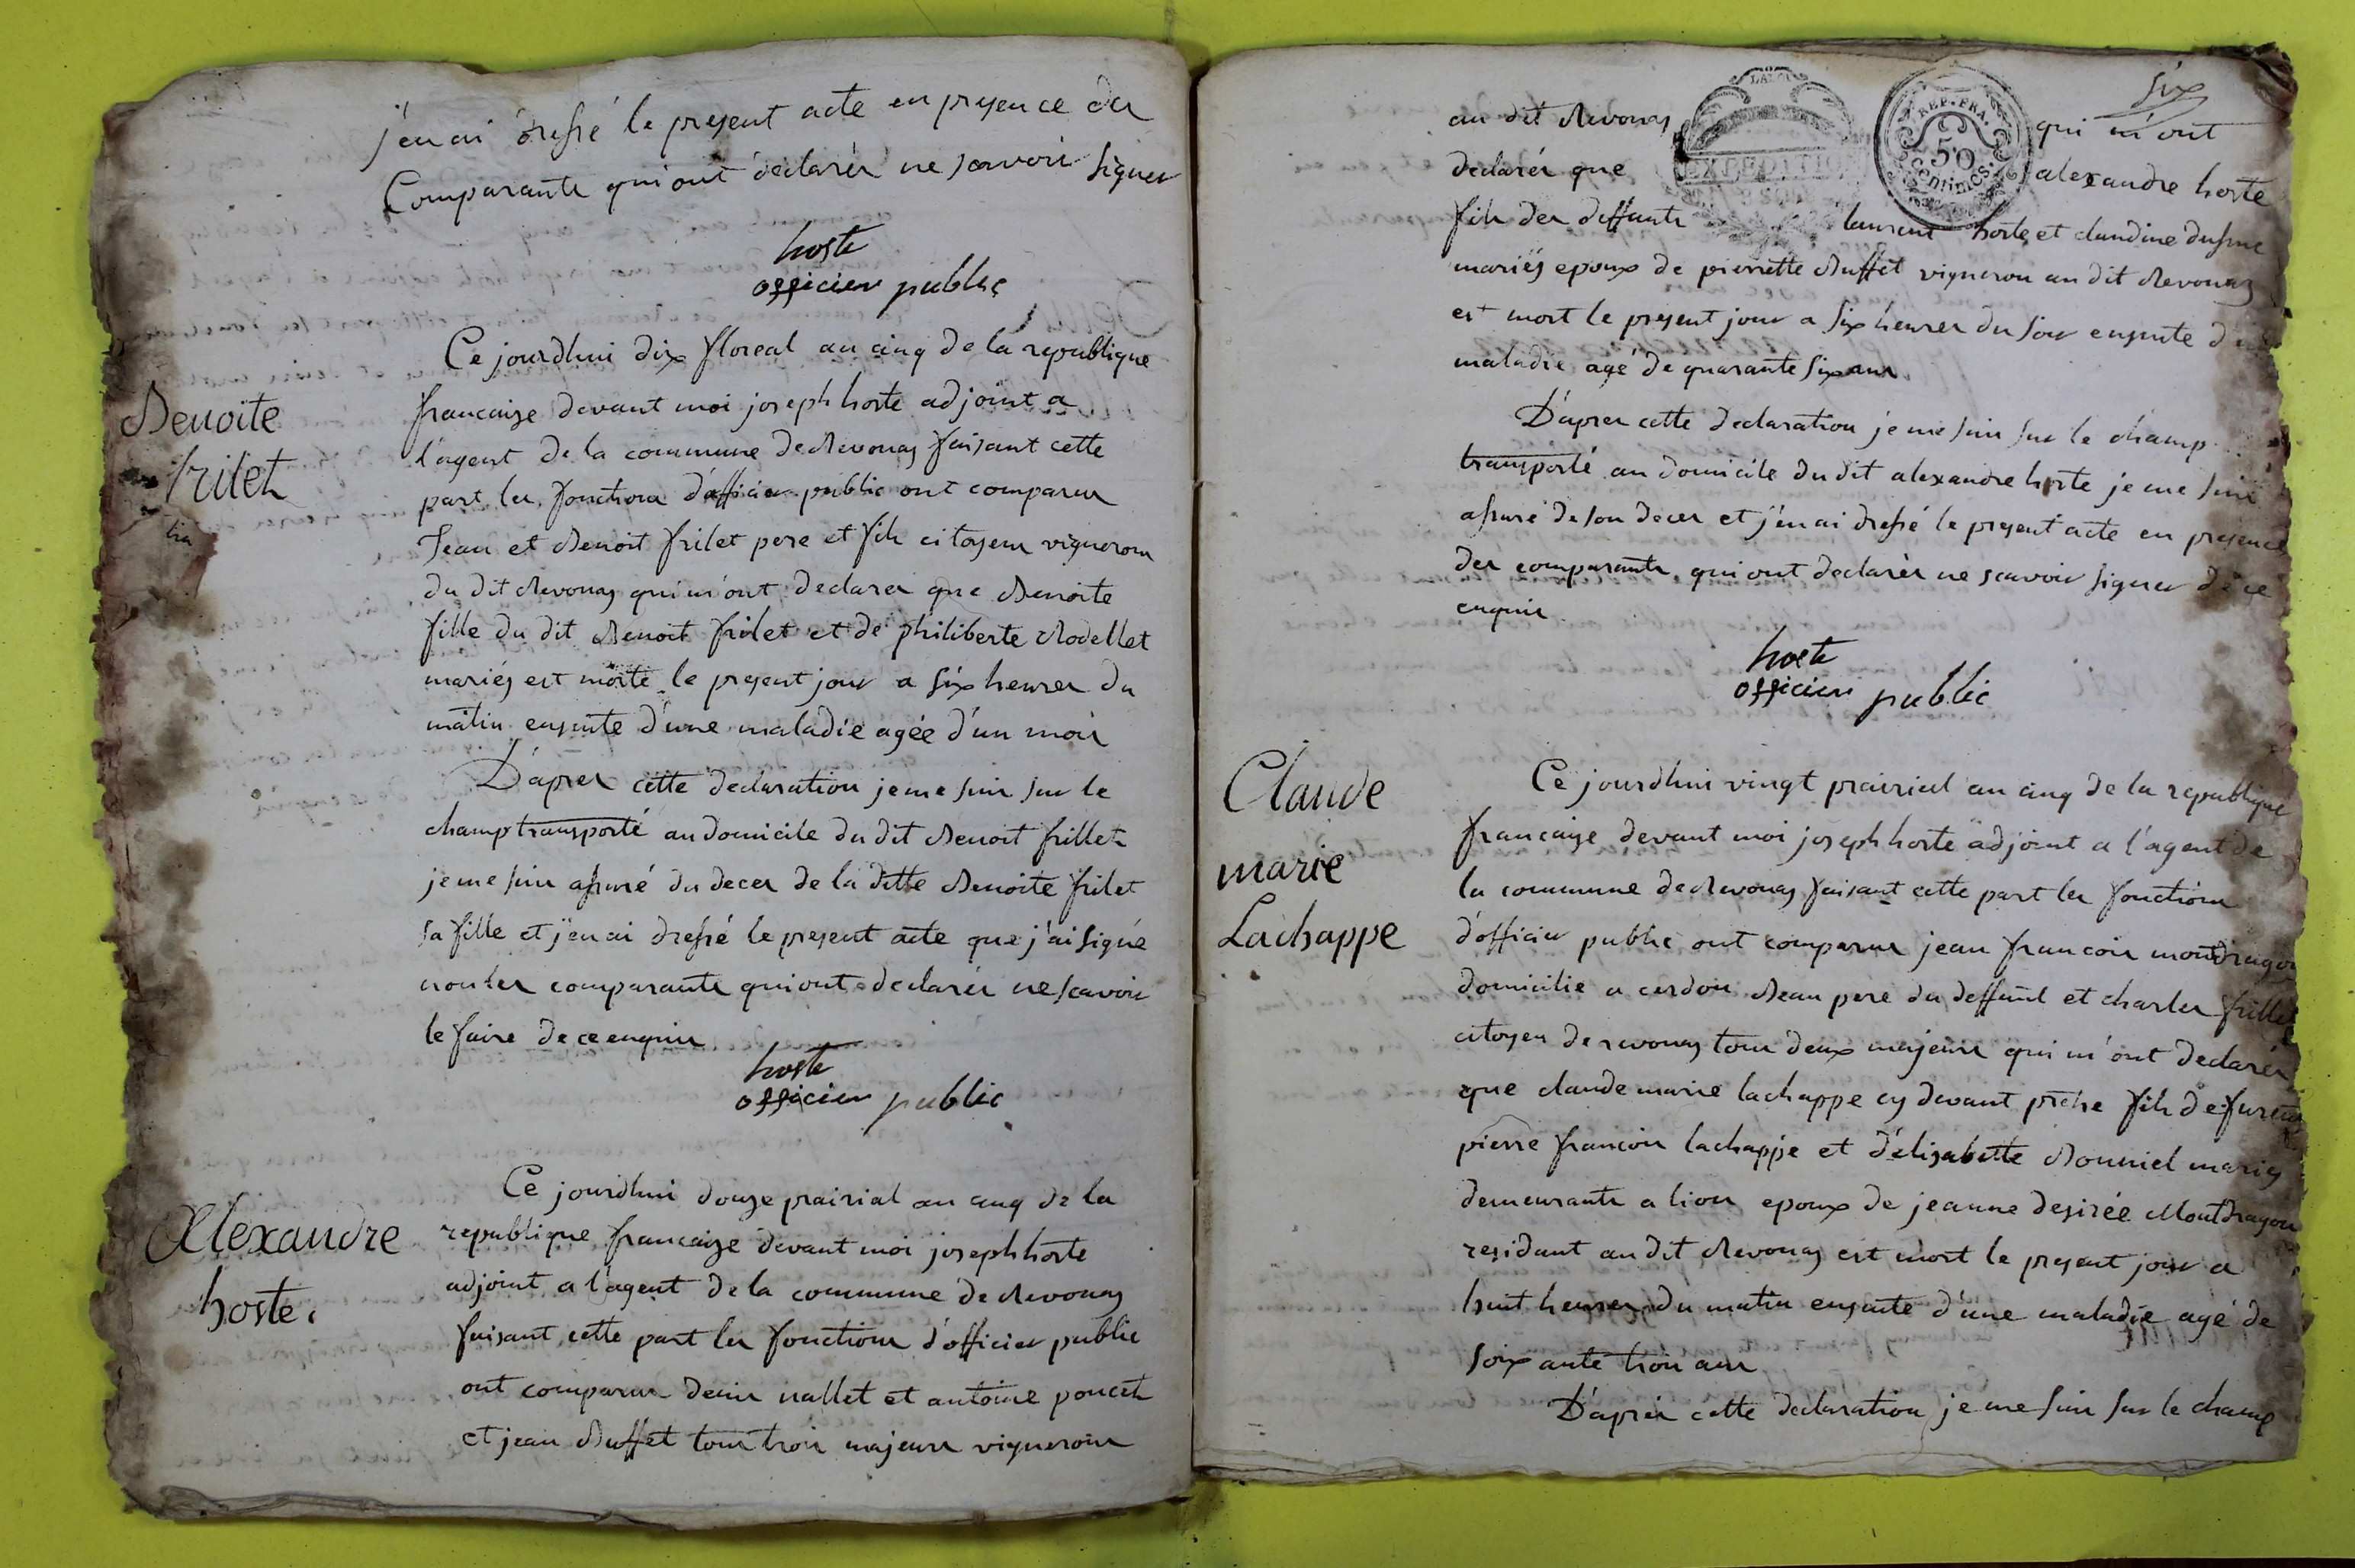 j'en ai dressé le present acte en presence des
Comparants qui ont declarés ne scavoir signer
hoste
officier public
Ce jourdhui dix floreal an cinq de la republique
Benoite
francaise devant moi joseph hoste adjoint a
l'agent de la commune de Revonas faisant cette
frilet
part les fonctions d'officier public ont comparus
Jean et Benoit frilet pere et fils citoyens vignerons
du dit Revonas qui m'ont declarer que Benoite
fille du dit Benoit frilet et de philiberte Rodellet
mariés est morte le present jour a six heures du
matin ensuite d'une maladie agée d'un mois
D'apres cette declaration je me suis sur le
champ transporté au domicile du dit Benoit frillet
je me suis assuré du deces de la ditte Benoite frilet
sa fille et j'en ai dressé le present acte que j'ai signé
non les comparants qui ont declarés ne scavoir
le faire de ce enquis
hoste
officier public
Ce jourdhui douze prairial an cinq de la
Alexandre
republique francaise devant moi joseph hoste
adjoint a l'agent de la commune de Revonas
hoste.
faisant cette part les fonctions d'officier public
ont comparus denis nallet et antoine poncet
et jean Buffet tous trois majeurs vignerons
six
au dit Revonas qui m'ont
EXPEDITION
REP. FRA.
50
centimes
declarés que alexandre hoste
fils des deffunts laurent hoste et claudine
mariés epoux de pierrette Buffet vigneron au dit Revonas
est mort le present jour a six heures du soir ensuite
maladie agé de quarante six ans
D'apres cette declaration je me suis sur le champ
transporté au domicile du dit alexandre hoste je me suis
assuré de son deces et j'en ai dressé le present acte en presence
des comparants qui ont declarés ne scavoir signer de ce
enquis
hoste
officier public
Ce jourdhui vingt prairial an cinq de la republique
Claude
francaise devant moi joseph hoste adjoint a l'agent de
marie
la commune de Revonas faisant cette part les fonctions
Lachappe
d'officier public ont comparus jean francois mondragon
domicilie a cerdon Beau pere du deffunt et charles frillet
citoyen de revonas tous deux majeurs qui m'ont declarés
que claude marie lachappe cy devant fils de furent
pierre francois lachappe et d'elizabette Bonniel mariés
demeurants a lion epoux de jeanne desirée Montdragon
residant au dit Revonas est mort le present jour a
huit heures du matin ensuite d'une maladie agé de
soixante trois ans
D'apres cette declaration je me suis sur le champ